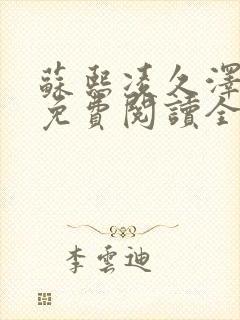 蘇熙凌久澤
免費閱讀全
李雲迪